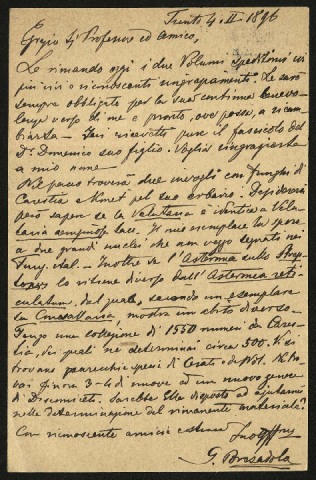 Trento 4. II 1896
Egregio Sig. Professore ed Amico,
Le rimando oggi i due Volumi speditimi coi
più vivi e riconoscenti ringraziamenti. Le sarò
sempre obbligato per la sua continua benevo-
lenza verso di me e pronto, ove possa, a ricam-
biarla — Ieri ricevetti pure il fascicolo del
Dr. Domenico suo figlio. Voglia ringraziarlo
a mio nome
Nel pacco troverà due invogli con funghi di
Carestia e Moret pel suo erbario. Desidererei
però sapere se la Valetiana è identica a Vola-
Sacc. Il mio esemplare ha spore
a due grandi nuclei che non veggo segnati nei
Fung. ital. — Inoltre se l'Asteroma sulla
lo ritiene diverso dall'Asteroma reti-
culatum, del quale, secondo un esemplare
la Convallaria mostra un abito diverso.
Tengo una collezione di 1550 numeri da Cares-
tia, dei quali ne determinai circa 500. Vi si
trovano parecchie specie di Cerato e Ne tro-
vai finora 3-4 di nuove ed un nuovo genere
di Discomiceti. Sarebbe Ella disposto ad ajutarmi
nella determinazione del rimanente materiale?
Con riconoscente amicizia e stima
G. Bresadola